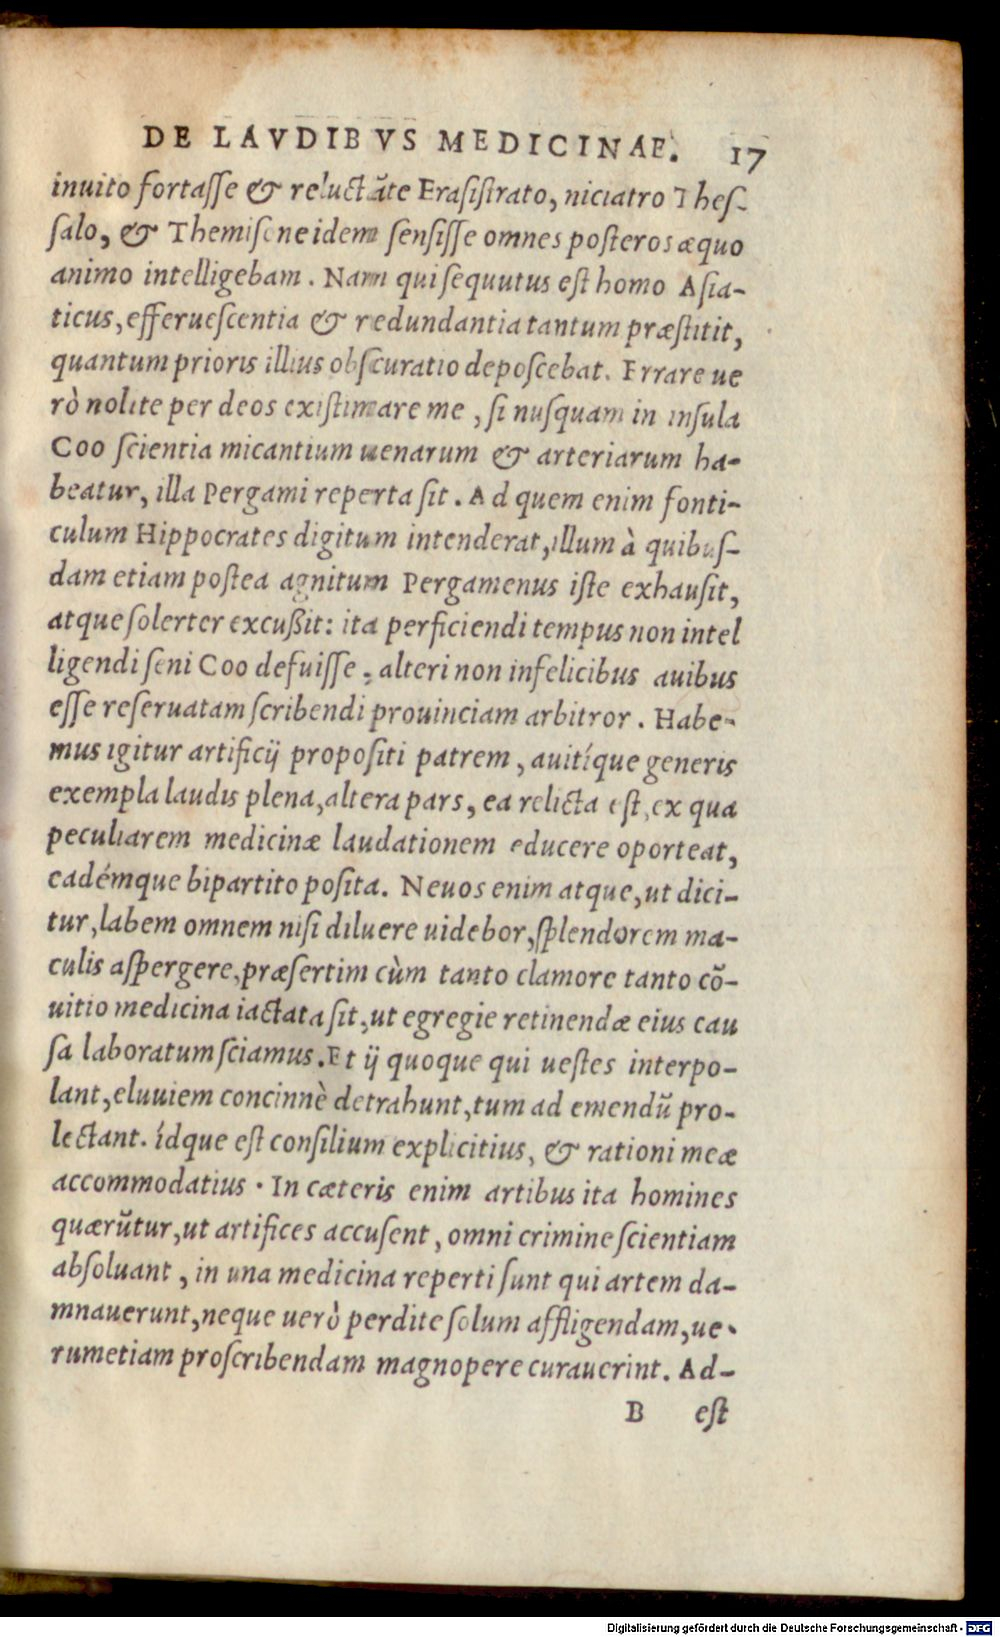 DE LAVDIBVS MEDICINAE. 17
inuito fortasse & reluctãte Erasistrato, niciatro Thes-
salo, & Themisone idem sensisse omnes posteros æquo
animo intelligebam. Nam qui sequutus est homo Asia-
ticus, efferuescentia & redundantia tantum præstitit,
quantum prioris illius obscuratio deposcebat. Errare ue
rò nolite per deos existimare me, si nusquam in insula
Coo scientia micantium uenarum & arteriarum ha-
beatur, illa Pergami reperta sit. Ad quem enim fonti-
culum Hippocrates digitum intenderat, illum à quibus-
dam etiam postea agnitum Pergamenus iste exhausit,
atque solerter excußit: ita perficiendi tempus non intel
ligendi seni Coo defuisse, alteri non infelicibus auibus
esse reseruatam scribendi prouinciam arbitror. Habe-
mus igitur artificij propositi patrem, auitíque generis
exempla laudis plena, altera pars, ea relicta est, ex qua
peculiarem medicinæ laudationem educere oporteat,
eadémque bipartito posita. Neuos enim atque, ut dici-
tur, labem omnem nisi diluere uidebor, splendorem ma-
culis aspergere, præsertim cùm tanto clamore tanto cõ-
uitio medicina iactata sit, ut egregie retinendæ eius cau
sa laboratum sciamus. Et ij quoque qui uestes interpo-
lant, eluuiem concinnè detrahunt, tum ad emendũ pro-
lectant. ídque est consilium explicitius, & rationi meæ
accommodatius. In cæteris enim artibus ita homines
quærũtur, ut artifices accusent, omni crimine scientiam
absoluant, in una medicina reperti sunt qui artem da-
mnauerunt, neque uerò perdite solum affligendam, ue-
rumetiam proscribendam magnopere curauerint. Ad-
B est
Digitalisierung gefördert durch die Deutsche Forschungsgemeinschaft - DFG